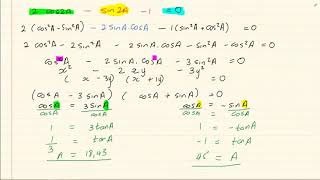 2 cos2A - sin2A - 1 = 0
2 (cos²A - sin²A) - 2 sinA.cosA - 1(sin²A + cos²A) = 0
2 cos²A - 2 sin²A - 2 sinA.cosA - sin²A - cos²A = 0
cos²A - 2 sinA.cosA - 3 sin²A = 0
x² - 2xy - 3y²
(x - 3y) (x + 1y)
(cosA - 3 sinA) (cosA + sinA) = 0
cosA = 3 sinA cosA = - sinA
cosA cosA cosA cosA
1 = 3 tanA 1 = - tanA
1/3 = tanA -1 = tanA
A = 18,43 45 = A